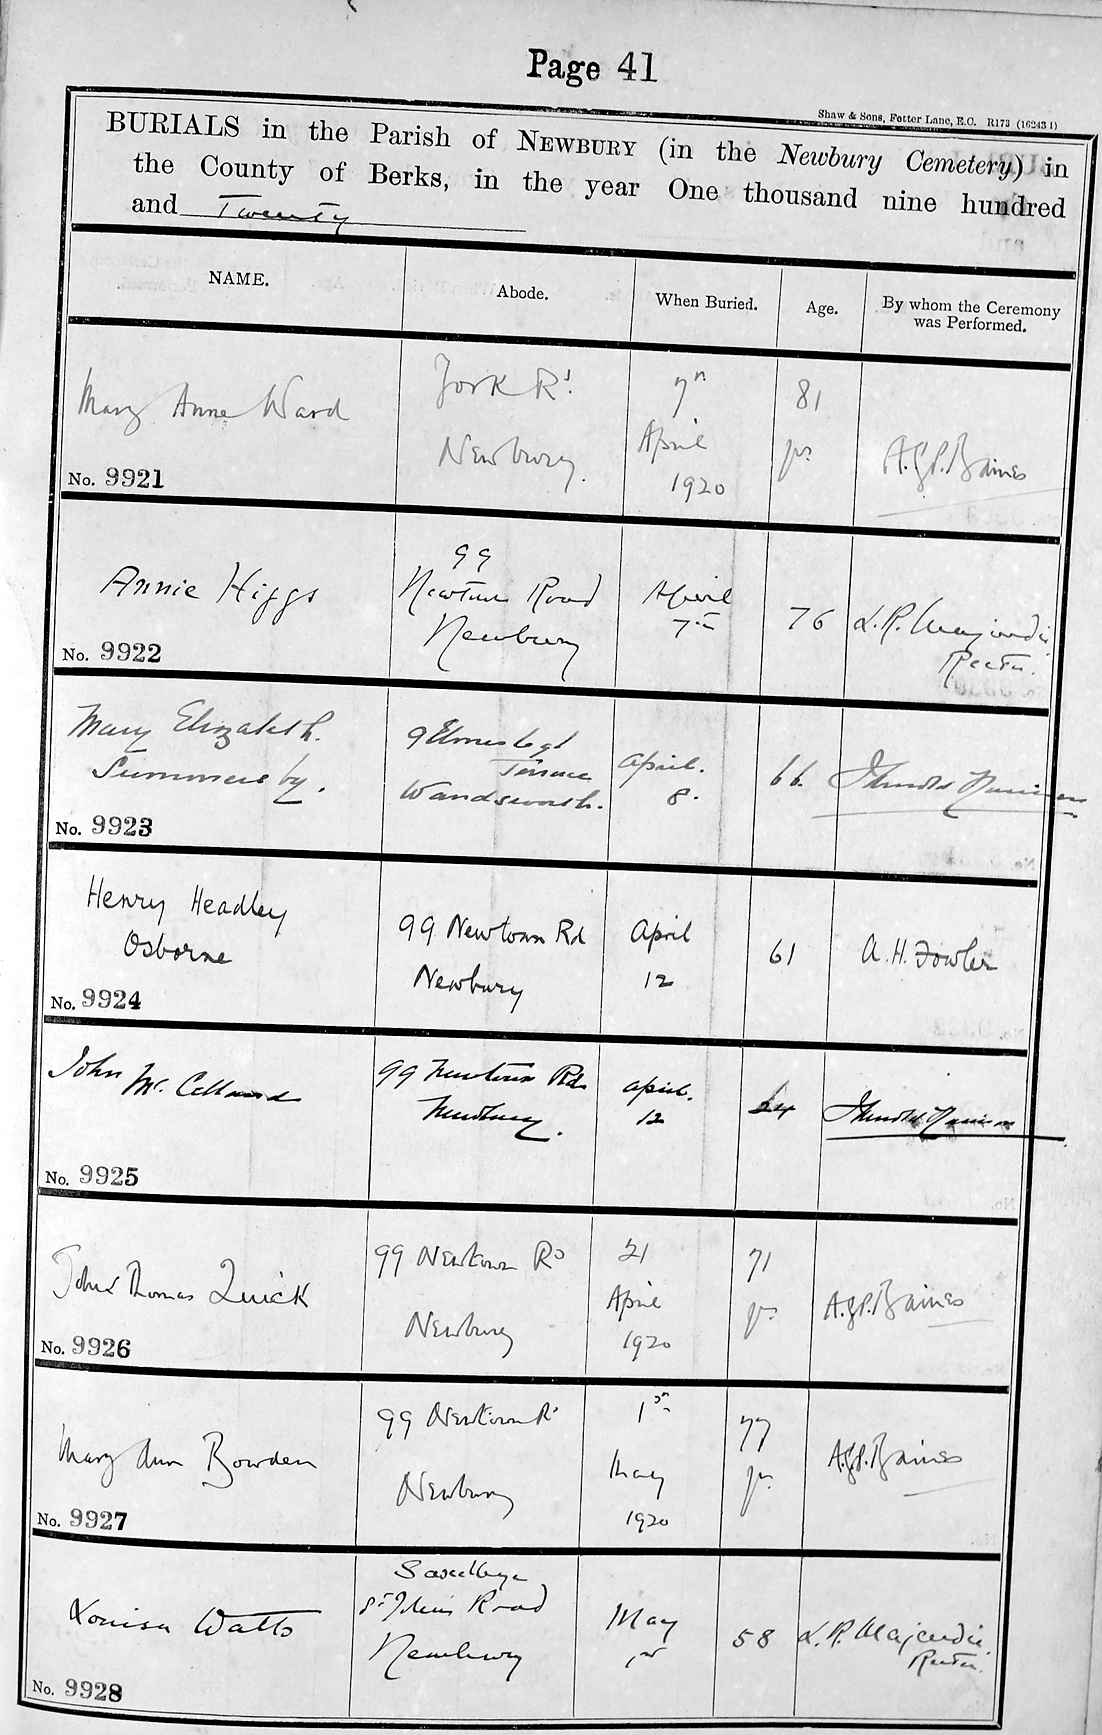 Page 41
Shaw & Sons, Fetter Lane, E.C. R173 (16243 1)
BURIALS in the Parish of NEWBURY (in the Newbury Cemetery) in
the County of Berks, in the year One thousand nine hundred
and Twenty
NAME.
Abode.
When Buried.
Age.
By whom the Ceremony
was Performed.
Mary Anne Ward
No. 9921
York Rd.
Newbury.
7th
April
1920
81
yrs
A.G.P. Baines
Annie Higgs
No. 9922
99
Newtown Road
Newbury
April
7th
76
L.R. Majendie
Rector.
Mary Elizabeth.
Summersby.
No. 9923
9
Terrace
Wandsworth.
April.
8.
66.
No. 9924
Henry Headley
Osborne
99 Newtown Rd
Newbury
April
12
61
A. H. Fowler
John
No. 9925
99 Newtown Rd
Newbury.
April.
12
John Thomas Quick
No. 9926
99 Newtown Rd
Newbury
21
April
1920
71
yrs
A.G.P. Baines
Mary Ann Bowden
No. 9927
99 Newtown Rd
Newbury
1st
May
1920
77
yrs
A.G.P. Baines
Louisa Watts
No. 9928
St Johns Road
Newbury
May
1st
58
L.R. Majendie
Rector.